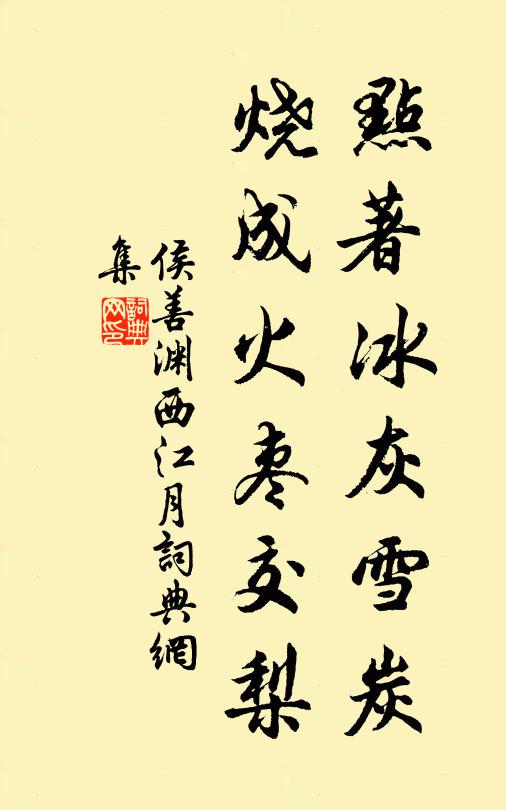 點著冰灰雪炭
烧成火枣交梨
侯善渊西江月詞典網
集
詞典網印